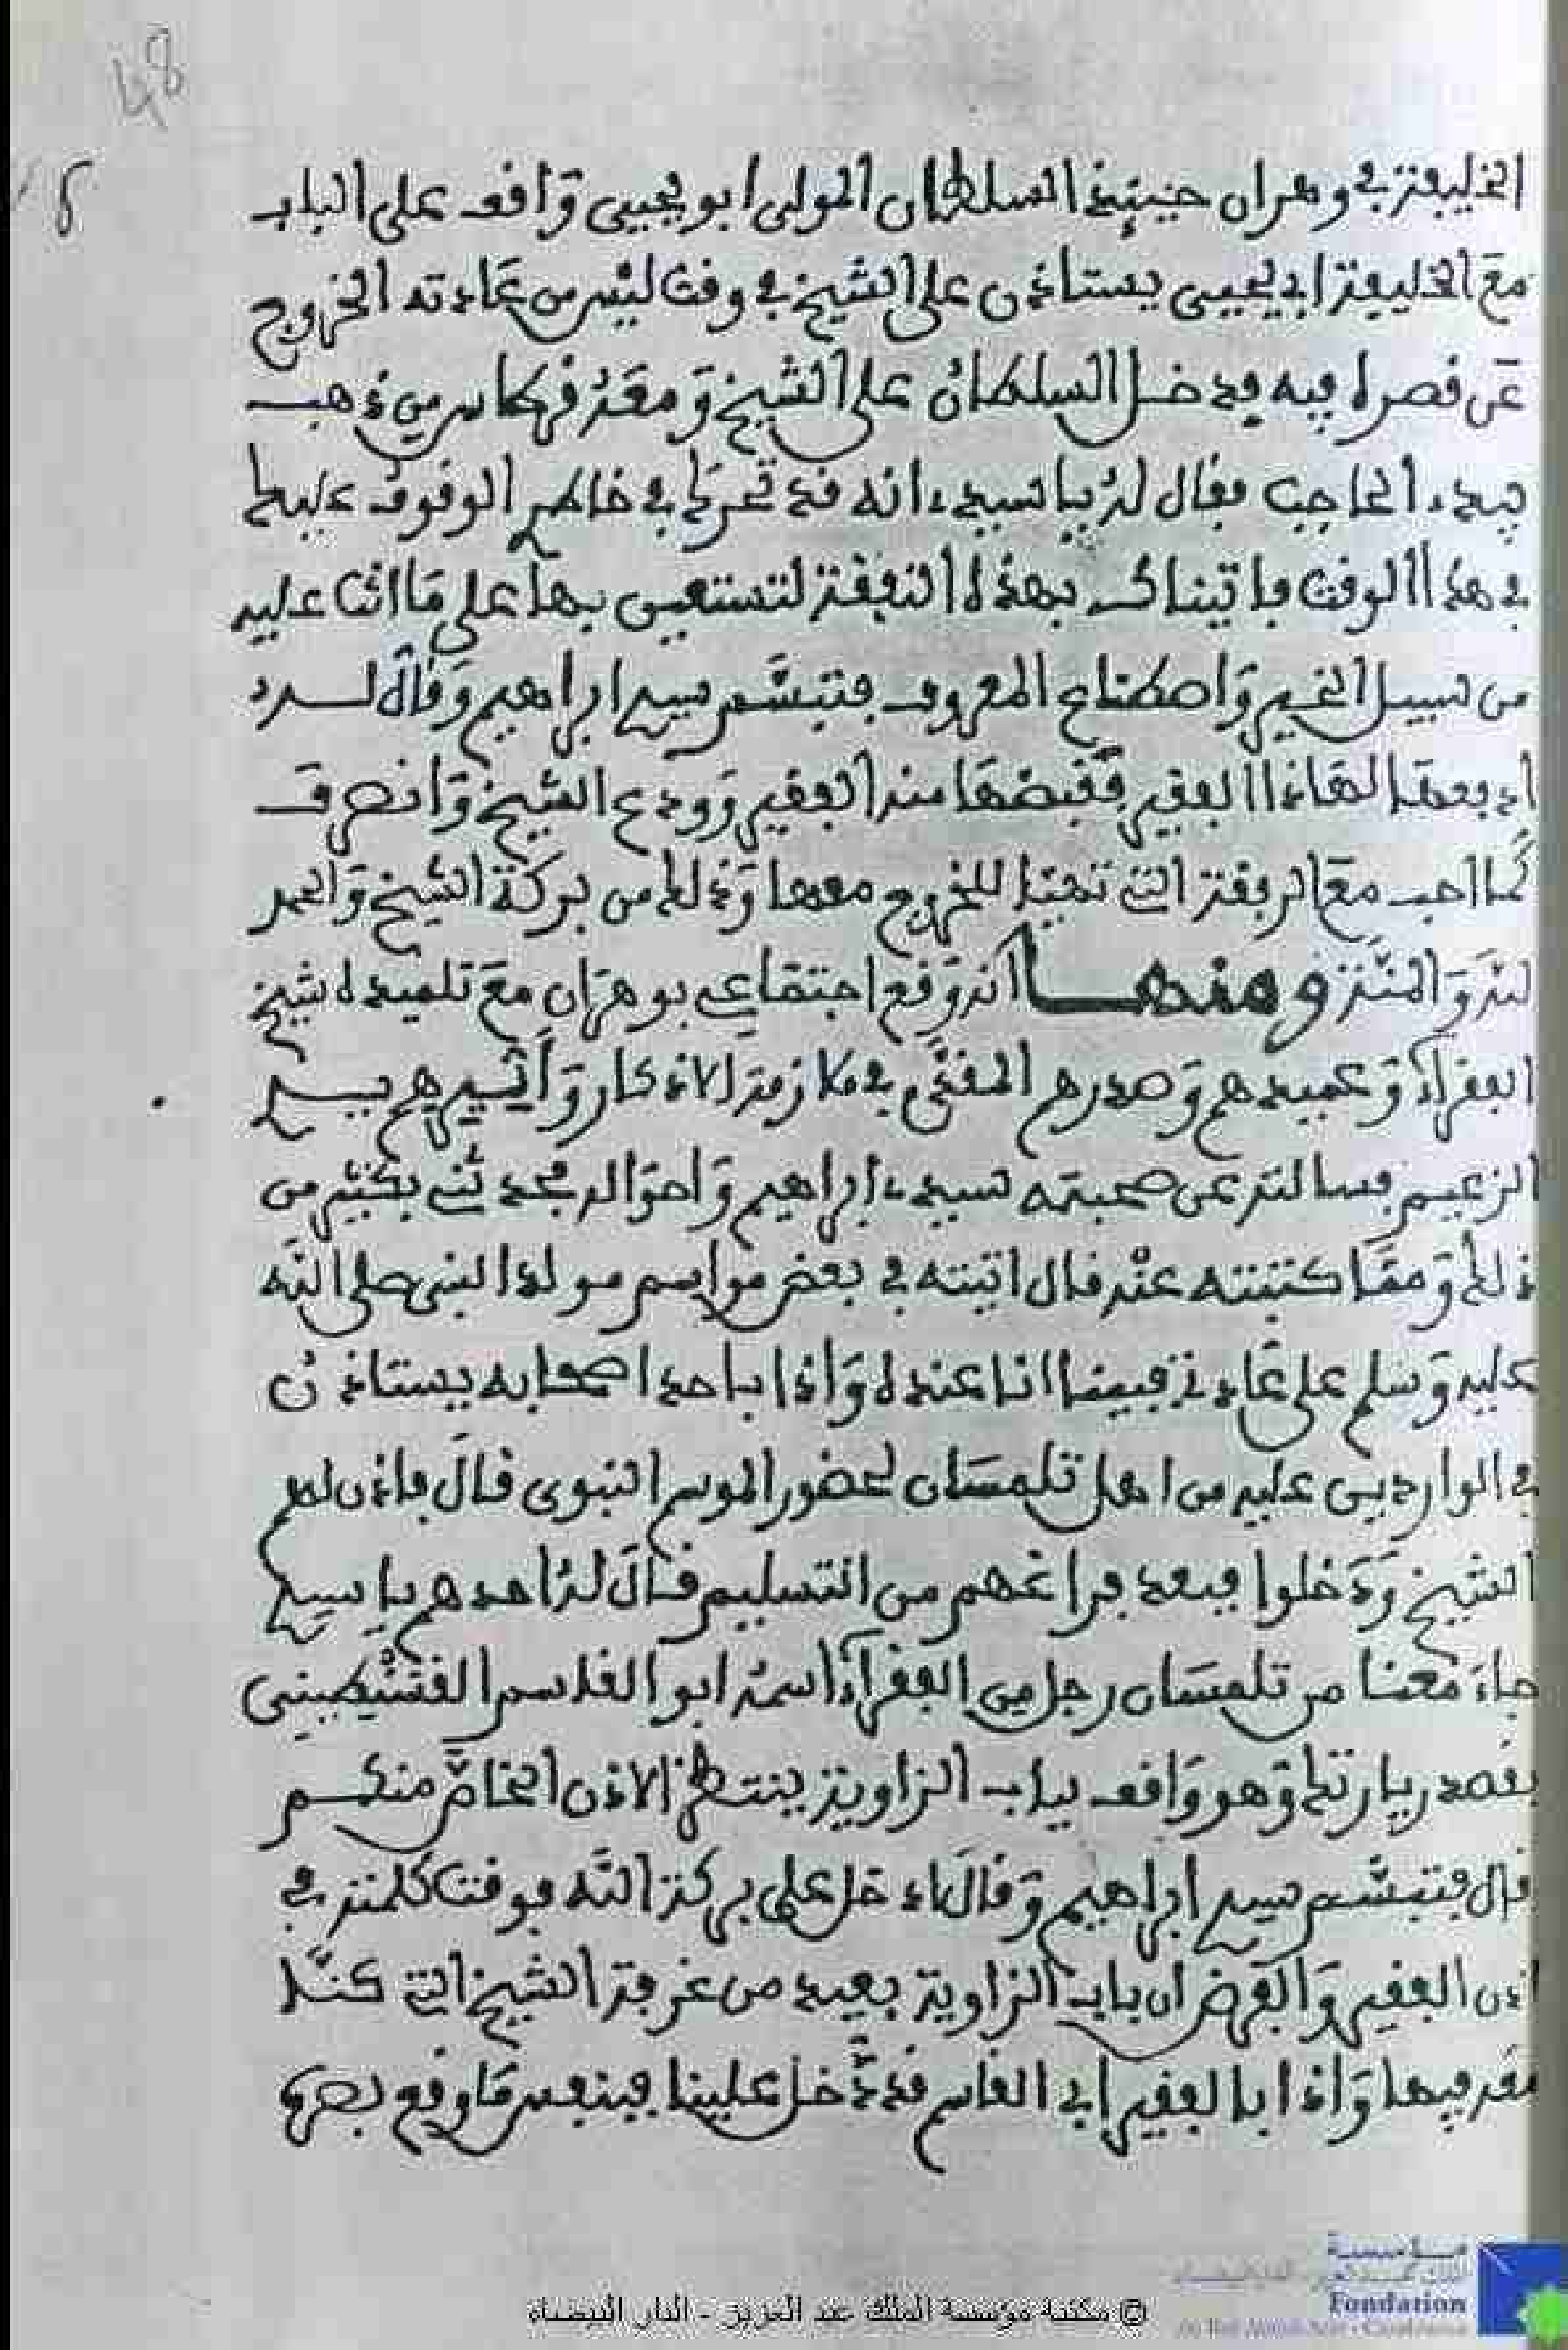 48
الخليفة في وهران حينئذ السلطان المولى ابو يحيى واقف على الباب
مع الخليفة ابي يحيى يستاذن على الشيخ في وقت ليس من عادته الخروج
عن قصره فيه فدخل السلطان على الشيخ ومعه قرطاس من ذهب
بيد الحاجب فقال له يا سيدي انه قد تحرك في خاطر الوقوف عليك
في هذا الوقت فاتيناك بهذه النفقة لتستعين بها على ما انت عليه
من سبيل الخير واصطناع المعروف فتبسم سيد ابراهيم وقال له
ادفعها لهاذا الفقير فقبضها منه الفقير وودع الشيخ وانصرف
كما احب مع الرفقة التي تهيا للخروج معها وذلك من بركة الشيخ والحمد
لله والمنة ومنها انه وقع اجتماعي بوهران مع تلميذه شيخ
الفقراء وعميدهم وصدرهم في ملازمة الاذكار
الزعيم فسالته عن صحبته سيدي ابراهيم واحواله فحدثني بكثير من
ذلك ومما كتبته عنه قال اتيته في بعض مواسم مولد النبي صلى الله
عليه وسلم على عادتي فبينما انا عنده واذا باحد اصحابه يستاذن
في الواردين عليه من اهل تلمسان لحضور الموسم النبوي قال فاذن لهم
الشيخ ودخلوا فبعد فراغهم من التسليم قال له احدهم يا سيدي
جاء معنا من تلمسان رجل من الفقراء اسمه ابو القاسم القسنطيني
بقصد زيارتك وهو واقف بباب الزاوية ينتظر الاذن الخاص منكم
قال فتبسم سيد ابراهيم وقال ادخل على بركة الله فوقعت كلمته في
اذن الفقير والفرض ان باب الزاوية بعيد من غرفة الشيخ التي كنا
معه فيها واذا بالفقير ابي القاسم قد دخل علينا فبنفس ما وقع بصره
© مكتبة مؤسسة الملك عبد العزيز - الدار البيضاء
مؤسسة
Fondation